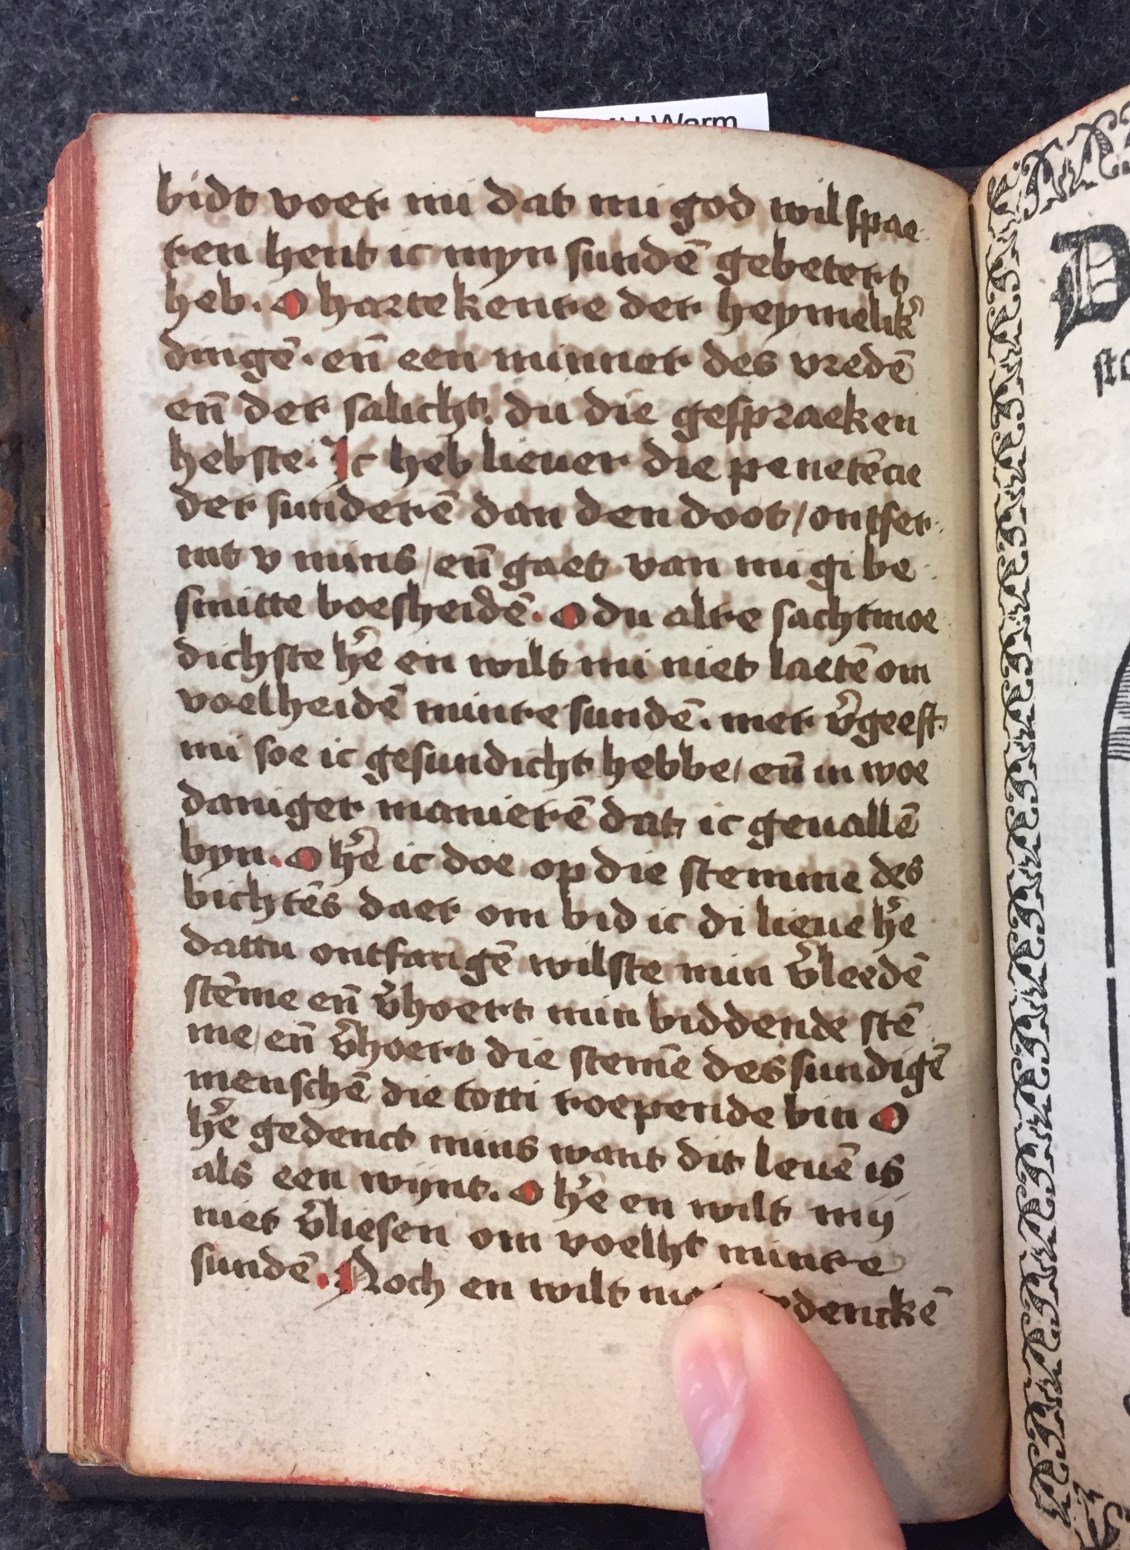 bidt voer mi dat mi god wil spae
ren hent ic myn sundē gebetert
heb. O harte kenre der heymelik̄
dingē. en̄ een minner des vredē
en̄ der salicht. du die gespraeken
hebste. Ic heb lieuer die penetēcie
der sunderē dan den doot/ontfer
mt v mins/en̄ gaet van mi gi be
smitte boesheidē. O du alre sachtmoe
dichste hr̄e en wilt mi niet laetē om
voelheidē minre sundē. mer v̄geeft
mi soe ic gesundicht hebbe/en̄ in woe
daniger manierē dat ic geuallē
byn. O hr̄e ic doe op die stemme des
bichtēs daer om bid ic di lieue hr̄e
dattu ontfangē wilste min v̄leedē
stēme en̄ v̄hoert min biddende stē
me/en̄ v̄hoert die stem̄e des sundigē
menschē die totti roepende bin O
hr̄e gedenct mins want dit leuē is
als een wijnt. O hr̄e en wilt mij
niet v̄liesen om voelht minre
sundē. Noch en wilt
D